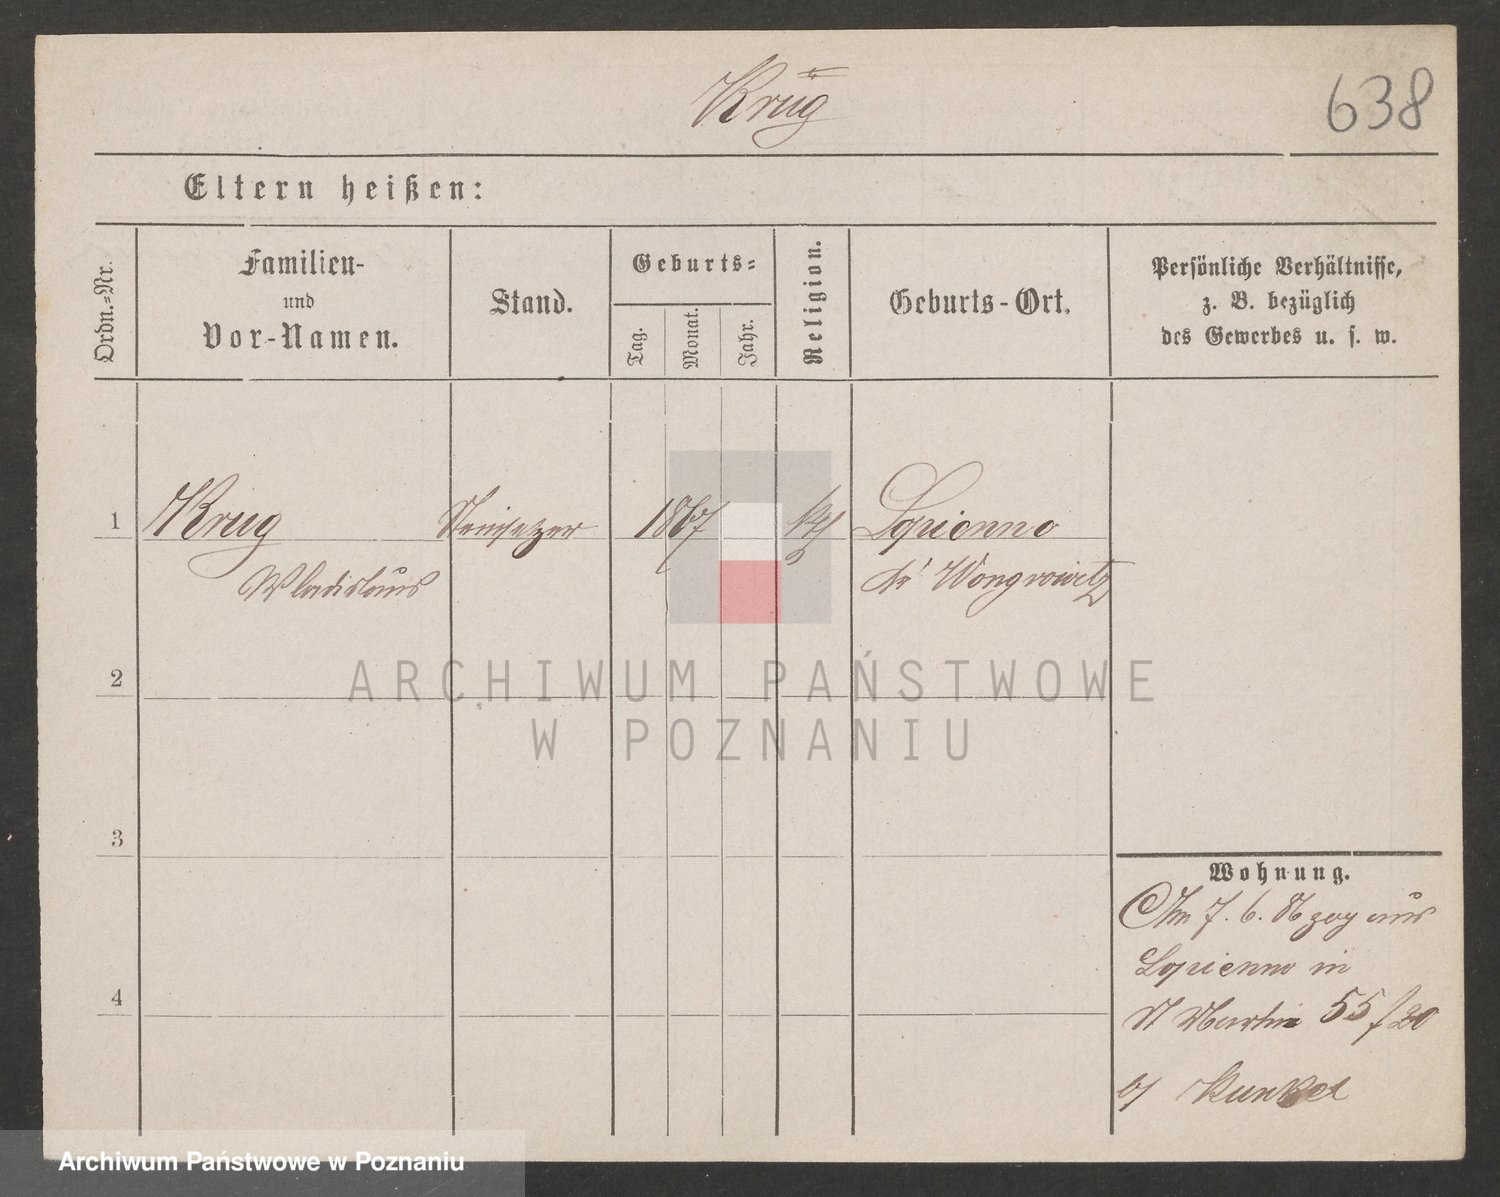 Krug
638
Eltern heißen:
Ordn.-Nr.
Familien-
und
Vor-Namen.
Stand.
Geburts-
Tag.
Monat.
Jahr.
Religion.
Geburts-Ort.
Persönliche Verhältnisse,
z. B. bezüglich
des Gewerbes u. s. w.
1
Krug
Steinsetzer
1867
Lopienno
Wladislaus
Wongrowitz
2
ARCHIWUM PAŃSTWOWE
W POZNANIU
3
Wohnung.
Am 7. 6. zog aus
Lopienno in
4
St Martin 55/20
b/ Kunkel
Archiwum Państwowe w Poznaniu